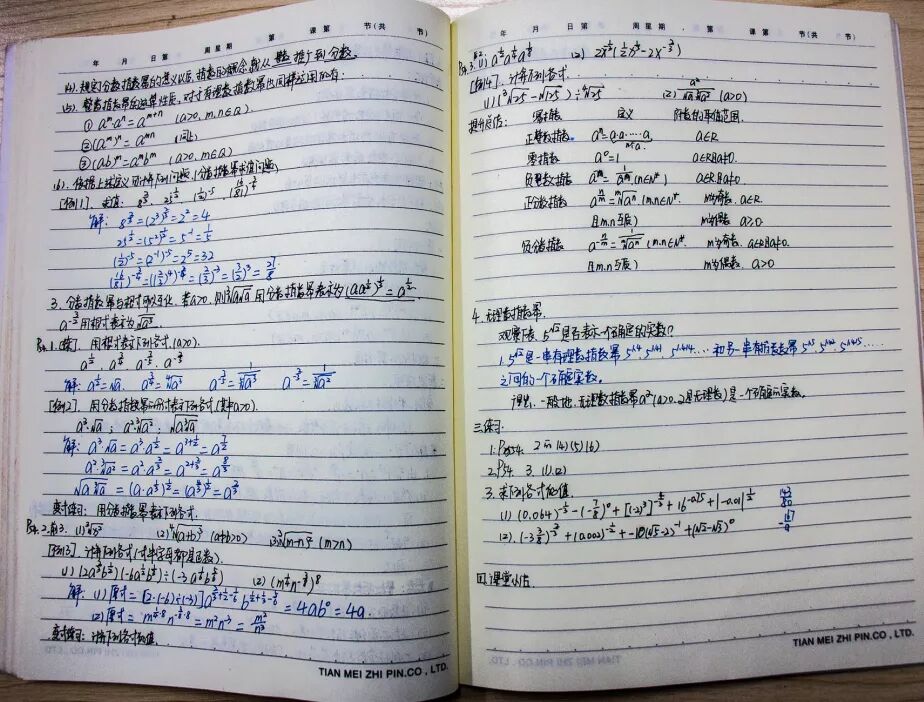 年 月 日 第 周 星期 第 课 第 节(共 节)
(4). 规定了分数指数幂的意义以后, 指数的概念就从整数推广到分数.
(5). 整数指数幂的运算性质, 对于有理数指数幂也同样适用即有:
① aᵐ·aⁿ = aᵐ⁺ⁿ (a>0, m.n∈Q)
② (aᵐ)ⁿ = aᵐⁿ (同上)
③ (ab)ᵐ = aᵐbᵐ (a>0, m∈Q)
(6). 依据上述定义可计算下列问题, (分数指数幂求值问题)
[例1]. 求值: 8^(2/3) 25^(-1/2) (1/2)^(-5) (16/81)^(-3/4)
解: 8^(2/3) = (2³)^(2/3) = 2² = 4
25^(-1/2) = (5²)^(-1/2) = 5⁻¹ = 1/5
(1/2)⁻⁵ = (2⁻¹)⁻⁵ = 2⁵ = 32
(16/81)^(-3/4) = ((2/3)⁴)^(-3/4) = (2/3)⁻³ = (3/2)³ = 27/8
3. 分数指数幂与根式可以互化, 若a>0, 则³√a√a 用分数指数幂表示为 (a·a^(1/2))^(1/3) = a^(1/2).
用根式表示为
用根式表示下列各式. (a>0).
a^(1/2). a^(3/4) a^(-3/5). a^(-2/3)
解: a^(1/2) = √a. a^(3/4) = ⁴√a³ a^(-3/5) = 1/⁵√a³ a^(-2/3) = 1/³√a²
[例2]. 用分数指数幂的形式表示下列各式 (其中a>0).
a³·√a ; a²·³√a² ; √a³√a
解: a³·√a = a³·a^(1/2) = a^(3+1/2) = a^(7/2)
a²·³√a² = a²·a^(2/3) = a^(2+2/3) = a^(8/3)
√a³√a = (a·a^(1/3))^(1/2) = (a^(4/3))^(1/2) = a^(2/3)
变式练习: 用分数指数幂表示下列各式.
P54. 2. (1) ³√x² (2) ⁴√(a+b)³ (a+b>0) (3) ³√(m-n)² (m>n)
[例3]. 计算下列各式 (式中字母都是正数).
(1) (2a^(2/3)b^(1/2))(-6a^(1/2)b^(1/3))÷(-3a^(1/6)b^(5/6)) (2) (m^(1/4)n^(-3/8))⁸
解: (1) 原式 = [2·(-6)÷(-3)]a^(2/3+1/2-1/6) b^(1/2+1/3-5/6) = 4ab⁰ = 4a
(2) 原式 = m^(1/4·8) n^(-3/8·8) = m²n⁻³ = m²/n³
变式练习: 计算下列各式的值.
TIAN MEI ZHI PIN.CO , LTD.
年 月 日 第 周 星期 第 课 第 节(共 节)
P54. 3. (1) a^(1/2)a^(1/4)a^(-1/8) (2) 2x^(-1/3)(1/2 x^(1/3) - 2x^(-2/3))
[例4]. 计算下列各式
(1) (³√25 - √125)÷⁴√25 (2) a²/(√a·³√a²) (a>0)
提升总结: 幂指数 定义 底数的取值范围.
正整数指数 aⁿ = a·a·…·a n个a. a∈R
零指数 a⁰ = 1 a∈R且a≠0.
负整数指数 a⁻ⁿ = 1/aⁿ (n∈N*) a∈R且a≠0
正分数指数 a^(n/m) = ᵐ√aⁿ (m.n∈N*. m为奇数. a∈R.
且m.n互质) m为偶数 a≥0
负分数指数 a^(-n/m) = 1/ᵐ√aⁿ (m.n∈N*. m为奇数. a∈R且a≠0.
且m.n互质) m为偶数. a>0
4. 无理数指数幂.
观察下表. 5^√2 是否表示一个确定的实数?
1. 5^√2 是一串有理数指数幂 5^1.4 5^1.41 5^1.414 … 和另一串有理数指数幂 5^1.5. 5^1.42. 5^1.415 ….
之间的一个确定实数.
一般地, 无理数指数幂a^α (a>0, α是无理数) 是一个确定的实数
三. 练习:
1. P54. 2 (4) (5) (6)
2. P54 3. (1). (2)
3. 求下列各式的值.
(1) (0.064)^(-1/3) - (-7/8)⁰ + [(-2)³]^(-4/3) + 16^(-0.75) + |-0.01|^(1/2) 143/80
(2). (-3 3/8)^(-2/3) + (0.002)^(-1/2) - 10(√5-2)⁻¹ + (√2-√3)⁰ -167/9
四. 课堂小结
TIAN MEI ZHI PIN.CO , LTD.